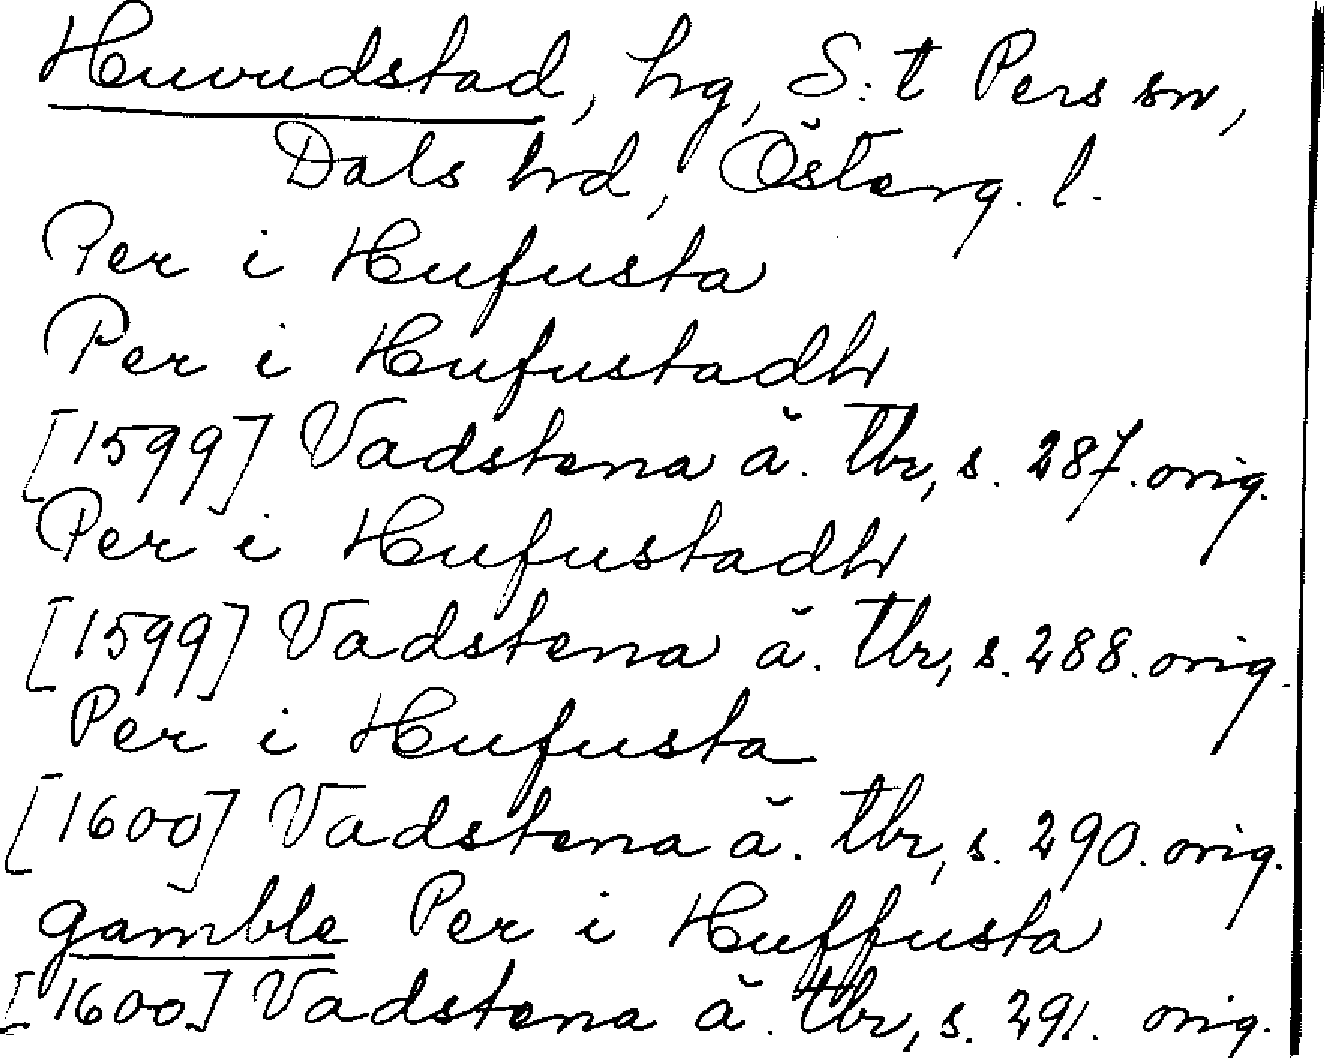 Huvudstad, hg, S:t Pers sn,
Dals hd, Österg. l.
Per i Hufusta
Per i Hufustadh
[1599] Vadstena ä. tbr, s. 287. orig.
Per i Hufustadh
[1599] Vadstena ä. tbr, s. 288. orig.
Per i Hufusta
[1600] Vadstena ä. tbr, s. 290. orig.
gamble Per i Huffusta
[1600] Vadstena ä. tbr, s. 291. orig.